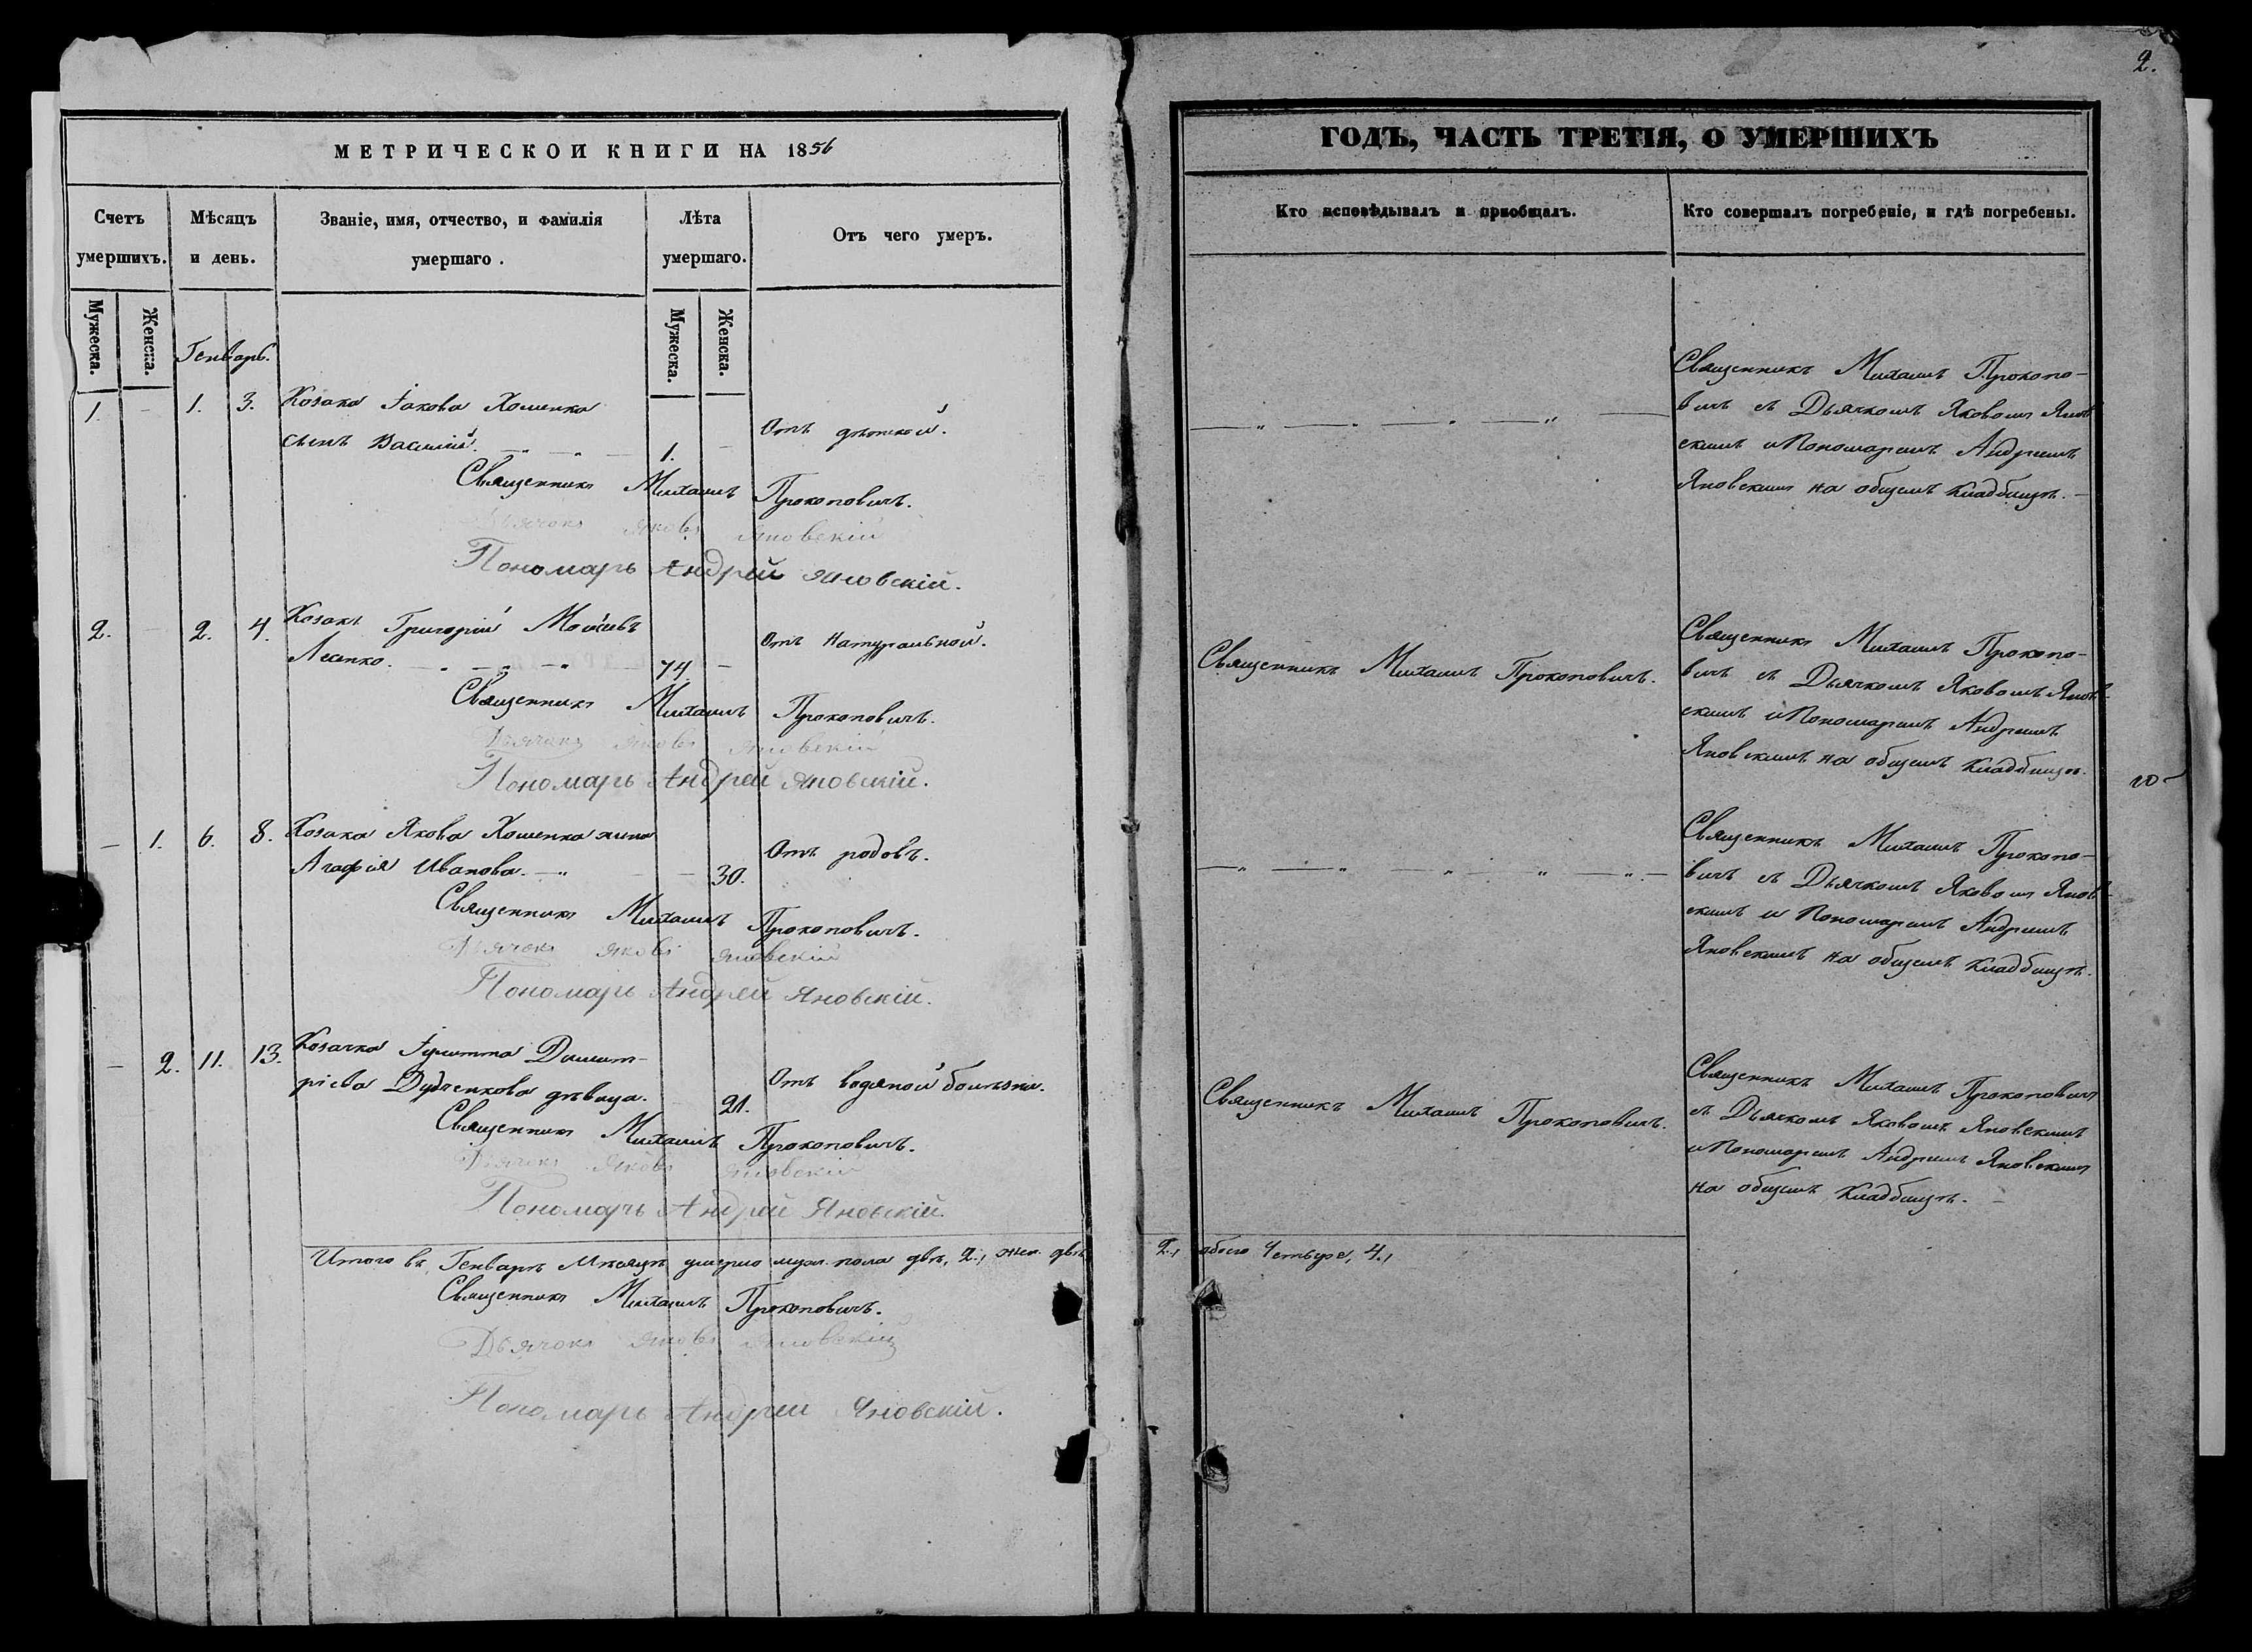 МЕТРИЧЕСКОЙ КНИГИ НА 1856
Счетъ умершихъ.
Мѣсяцъ и день.
Званіе, имя, отчество, и фамилія умершаго.
Лѣта умершаго.
Отъ чего умеръ.
Мужеска.
Женска.
Генварь.
Мужеска.
Женска.
1. - 1. 3. Козака Іакова Хоменка
сынъ Василій. 1. - Отъ дѣтской.
Священникъ Михаилъ Прокоповичъ.
Дьячокъ Яковъ Яновскій
Пономарь Андрей Яновскій.
2. - 2. 4. Козакъ Григорій Моисѣевъ
Лесенко. 74. - Отъ натуральной.
Священникъ Михаилъ Прокоповичъ.
Дьячокъ Яковъ Яновскій
Пономарь Андрей Яновскій.
- 1. 6. 8. Козака Якова Хоменка жена
Агафія Иванова. - 30. Отъ родовъ.
Священникъ Михаилъ Прокоповичъ.
Дьячокъ Яковъ Яновскій
Пономарь Андрей Яновскій.
- 2. 11. 13. Козачка Іулитта Димит-
ріева Дудченкова дѣвица. 21. Отъ водяной болѣзни.
Священникъ Михаилъ Прокоповичъ.
Дьячокъ Яковъ Яновскій
Пономарь Андрей Яновскій.
Итого въ Генварѣ мѣсяцѣ умерло муж. пола два, 2., жен. двѣ,
Священникъ Михаилъ Прокоповичъ.
Дьячокъ Яковъ Яновскій
Пономарь Андрей Яновскій.
2.
ГОДЪ, ЧАСТЬ ТРЕТІЯ, О УМЕРШИХЪ
Кто исповѣдывалъ и пріобщалъ.
Кто совершалъ погребеніе, и гдѣ погребены.
Священникъ Михаилъ Прокопо-
вичъ съ Дьячкомъ Яковомъ Янов-
скимъ и Пономаремъ Андреемъ
Яновскимъ на общемъ кладбищѣ.
Священникъ Михаилъ Прокоповичъ.
Священникъ Михаилъ Прокопо-
вичъ съ Дьячкомъ Яковомъ Янов-
скимъ и Пономаремъ Андреемъ
Яновскимъ на общемъ кладбищѣ.
Священникъ Михаилъ Прокопо-
вичъ съ Дьячкомъ Яковомъ Янов-
скимъ и Пономаремъ Андреемъ
Яновскимъ на общемъ кладбищѣ.
Священникъ Михаилъ Прокоповичъ.
Священникъ Михаилъ Прокоповичъ
съ Дьячкомъ Яковомъ Яновскимъ
и Пономаремъ Андреемъ Яновскимъ
на общемъ кладбищѣ.
2., обоего четыре, 4.,